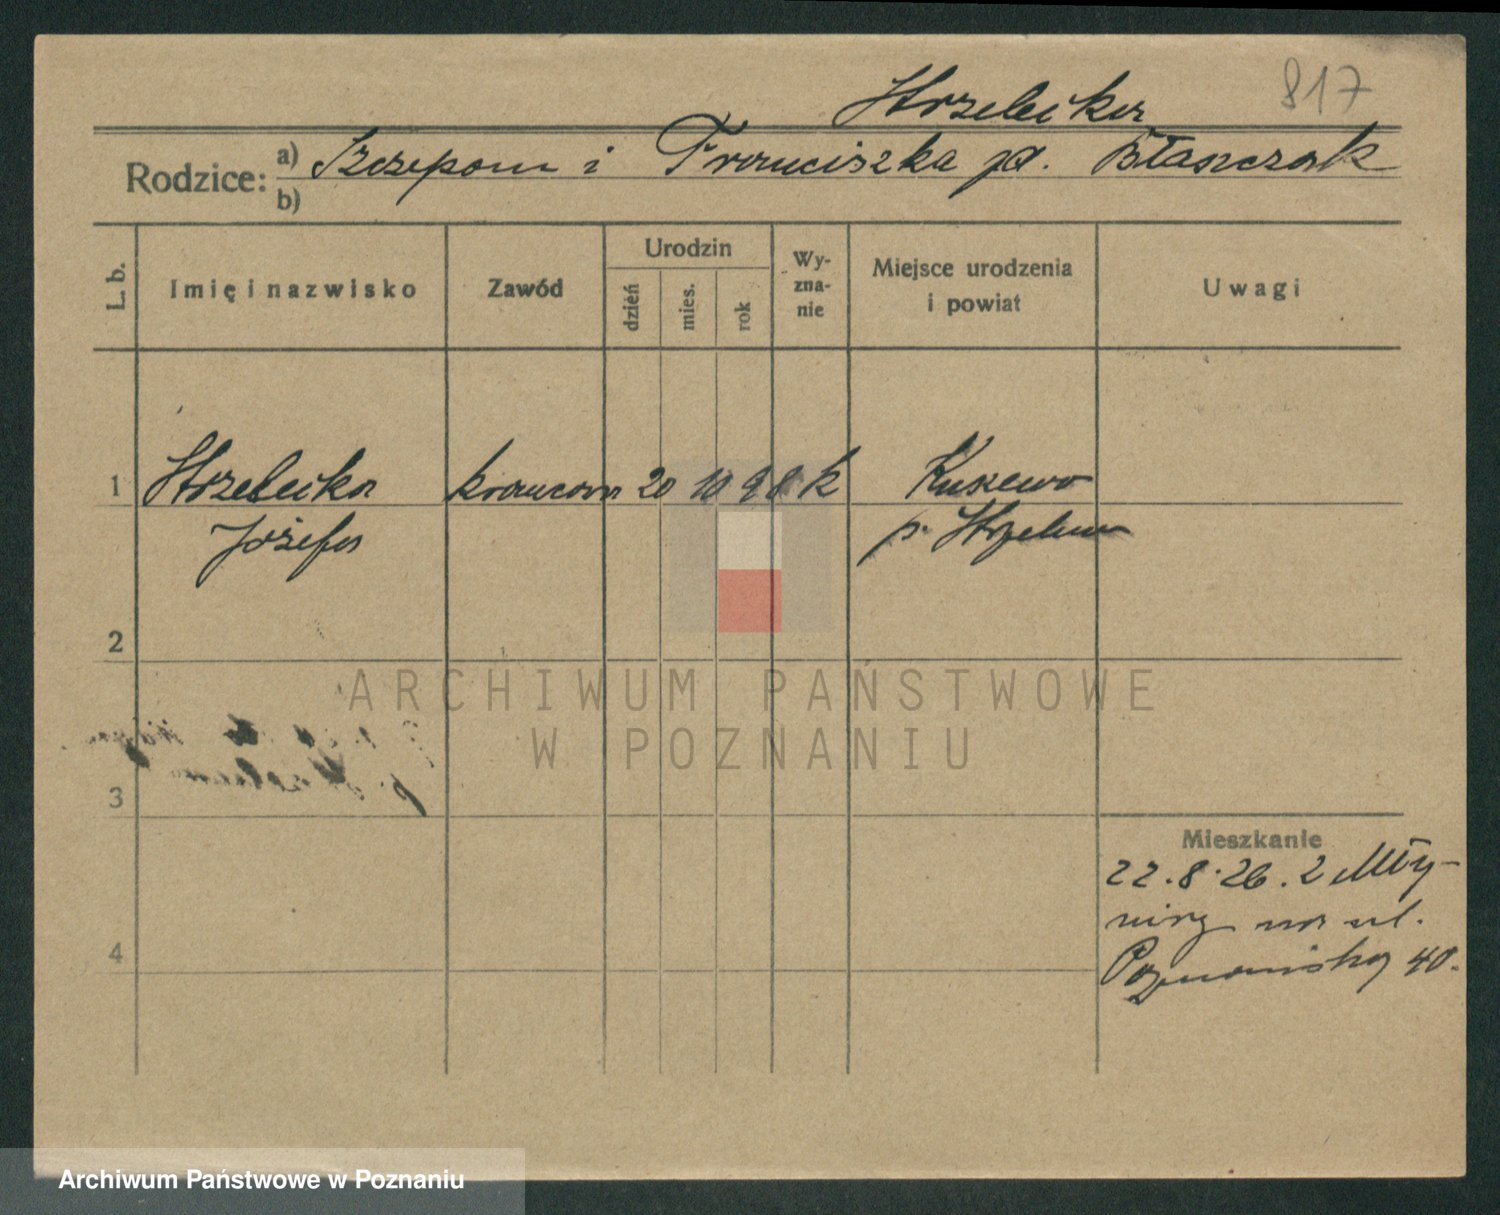 Strzelecka
817
Rodzice: a) Szczepan i Franciszka zd. Błaszczak
b)
L. b.
Imię i nazwisko
Zawód
Urodzin
dzień
mies.
rok
Wy-
zna-
nie
Miejsce urodzenia
i powiat
Uwagi
1 Strzelecka krawcowa 20 10 98 k Kuszewo
Józefa p. Strzelno
2
ARCHIWUM PAŃSTWOWE
W POZNANIU
3
Mieszkanie
22.8.26. z Mły-
na ul.
4
Poznańską 40.
Archiwum Państwowe w Poznaniu